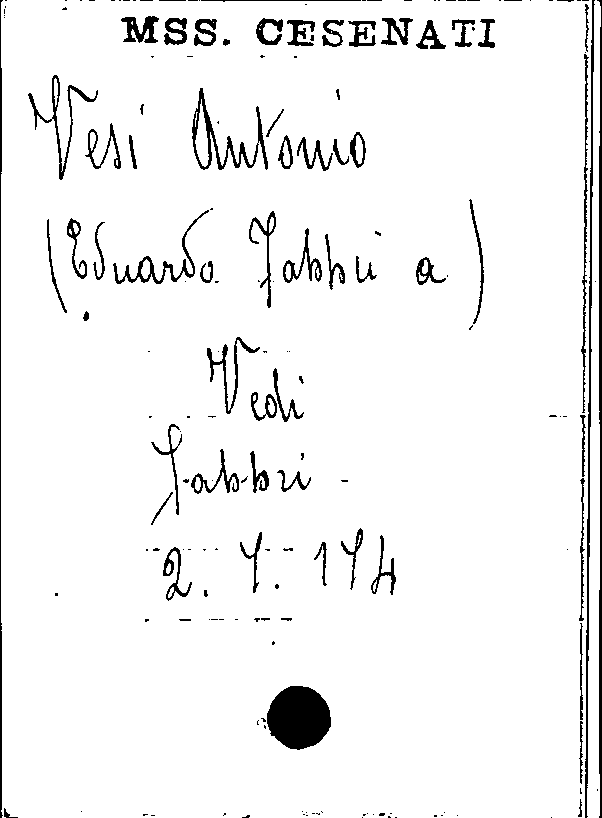 MSS. CESENATI
Vesi Antonio
(Eduardo Fabbri a)
Vedi
Fabbri -
2. 7. 174